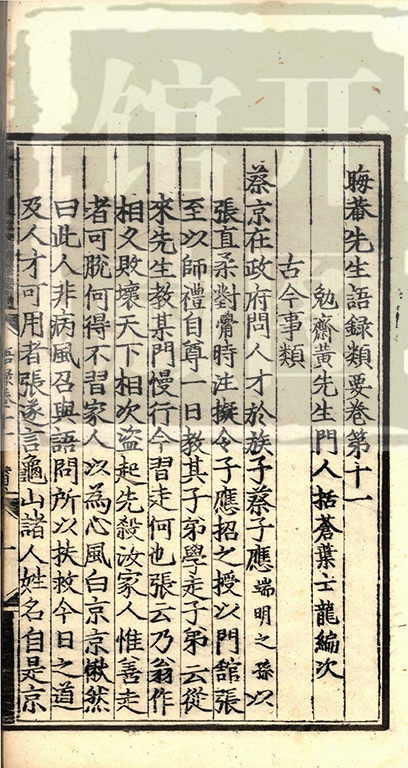 晦菴先生語録類要卷第十一
勉齋黄先生門人括蒼葉士龍編次
古今事類
蔡京在政府問人才於族子蔡子應端明之孫以
張直柔對時注擬令子應招之授以門舘張
至以師禮自尊一日教其子弟學走子弟云從
來先生教某門慢行今習走何也張云乃翁作
相久敗壞天下相次盜起先殺汝家人惟善走
者可脱何得不習家人以為心風白京京愀然
曰此人非病風召與語問所以扶救今日之道
及人才可用者張遂言龜山諸人姓名自是京